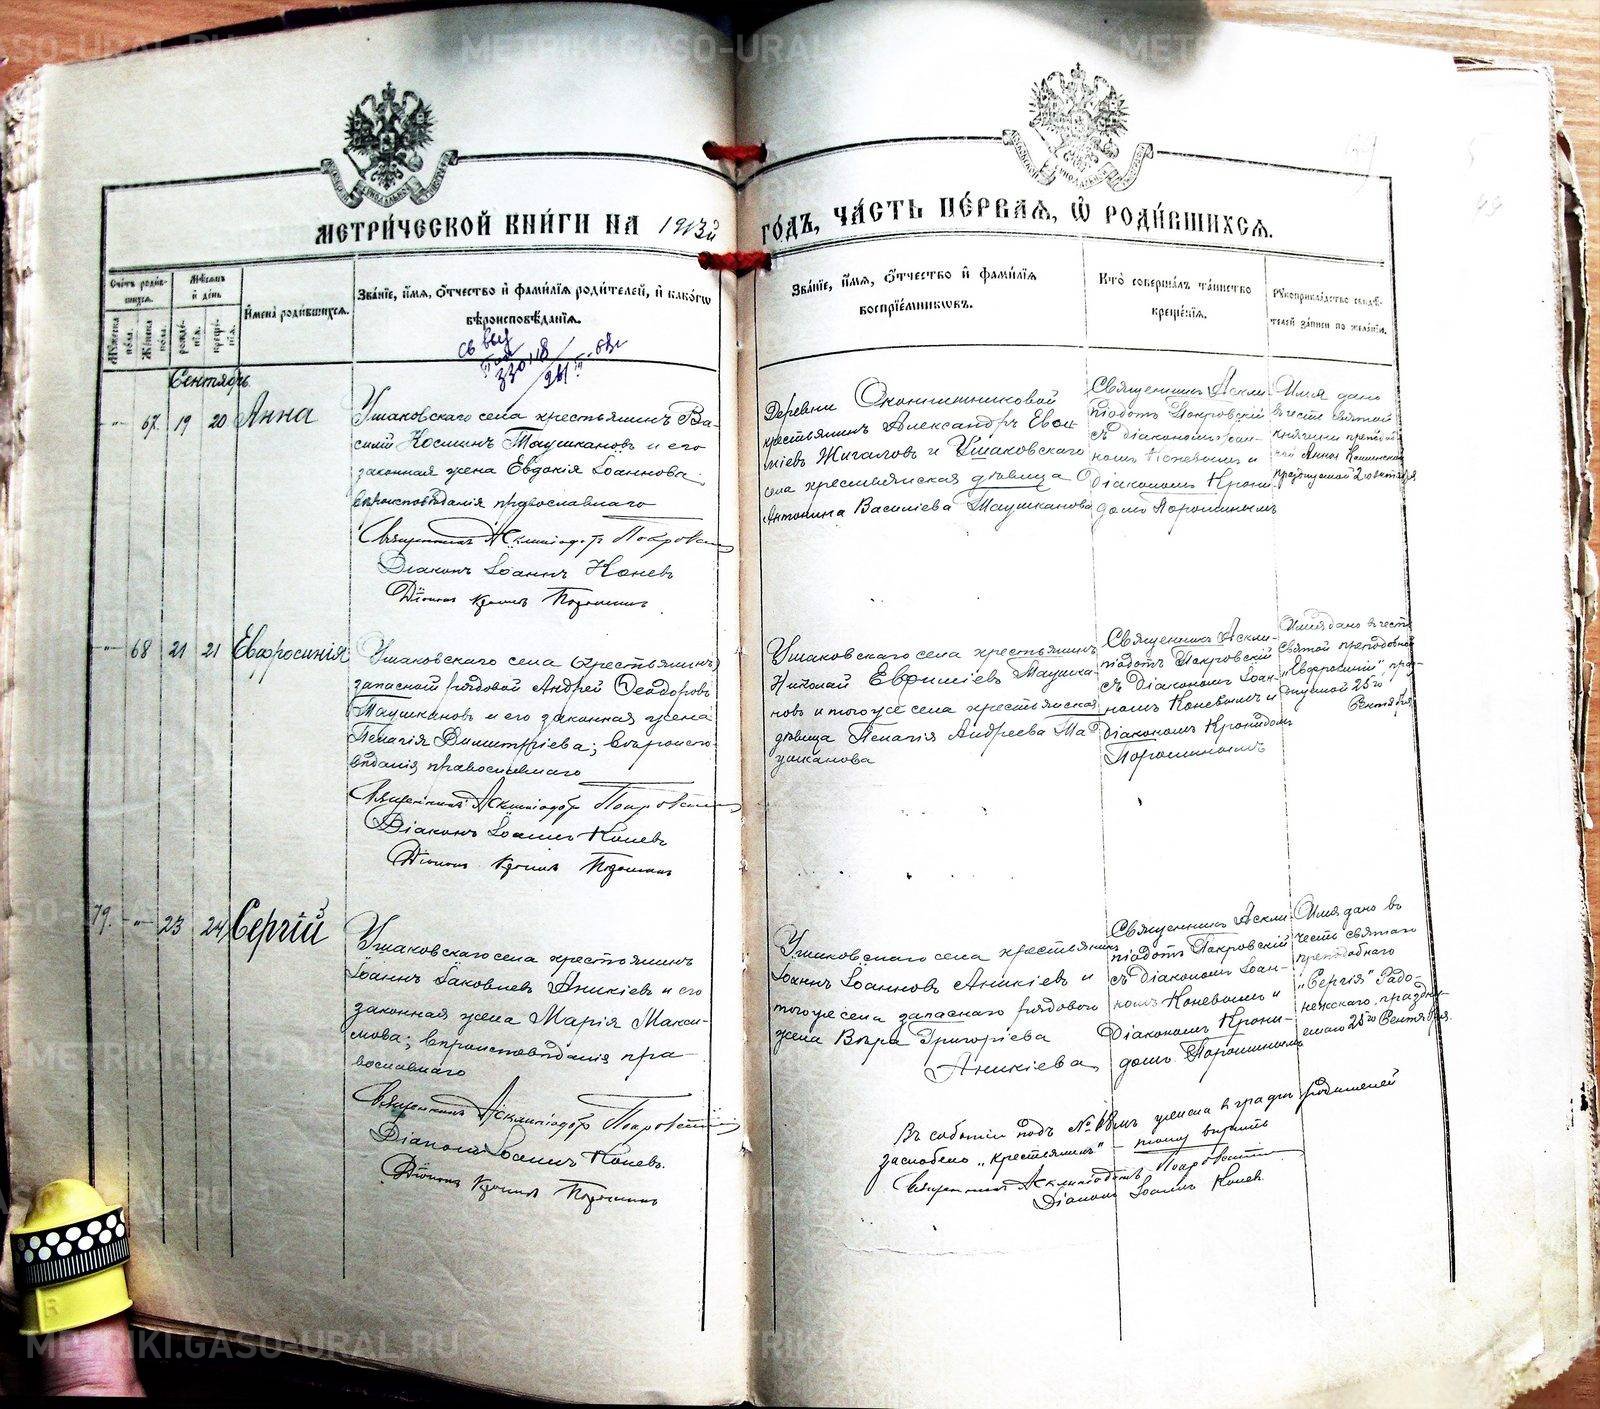 METRIKI.GASO-URAL.RU
МЕТРИ́ЧЕСКОЙ КНИ́ГИ НА 1913й ГО́ДЪ, ЧА́СТЬ ПЕ́РВАЯ, Ѡ РОДИ́ВШИХСЯ.
Сче́тъ роди́в-
шихся.
Му́жеска пола.
Же́нска пола.
Мѣсяцъ
и день
рожде-
нія.
креще-
нія.
И́мена роди́вшихся.
Зва́ніе, и́мя, о́тчество и фами́лія роди́телей, и како́гѡ
вѣроисповѣданія.
Зва́ніе, и́мя, о́тчество и фами́лія
воспріе́мниковъ.
Кто̀ соверша́лъ та́инство
креще́нія.
Рукоприкла́дство свидѣ-
телей за́писи по жела́нію.
Сентябрь
67. 19 20 Анна
Ушаковскаго села крестьянинъ Ва-
силій Косминъ Таушкановъ и его
законная жена Евдокія Іоаннова,
вѣроисповѣданія православнаго
Священникъ Асклипіодотъ Покровскій
Діаконъ Іоаннъ Коневъ
Діаконъ Кронидъ Порошинъ
Деревни Оконишниковой
крестьянинъ Александръ
Жигаловъ и Ушаковскаго
села крестьянская дѣвица
Антонина Василіева Таушканова
Священникъ Аскли-
піодотъ Покровскій
съ діакономъ Іоан-
номъ Коневымъ и
Діакономъ Крони-
домъ Порошинымъ
Имя дано
въ честь святой
княгини преподоб-
ной Анны Кашинской
празднуемой 2 октября
68 21 21 Евфросинія
Ушаковскаго села крестьянинъ
запасной рядовой Андрей Ѳеодоровъ
Таушкановъ и его законная жена
Пелагія Димитріева; вѣроиспо-
вѣданія православнаго
Священникъ Асклипіодотъ Покровскій
Діаконъ Іоаннъ Коневъ
Діаконъ Кронидъ Порошинъ
Ушаковскаго села крестьянинъ
Николай Евфиміевъ Таушка-
новъ и того же села крестьянская
дѣвица Пелагія Андреева Та-
ушканова
Священникъ Аскли-
піодотъ Покровскій
съ Діакономъ Іоан-
номъ Коневымъ и
Діакономъ Кронидомъ
Порошинымъ
Имя дано въ честь
святой преподобной
„Евфросиніи" праз-
днуемой 25го
Сентября.
79. 23 24 Сергій
Ушаковскаго села крестьянинъ
Іоаннъ Іаковлевъ Аникіевъ и его
законная жена Марія Макси-
мова; вѣроисповѣданія пра-
вославнаго
Священникъ Асклипіодотъ Покровскій
Діаконъ Іоаннъ Коневъ.
Діаконъ Кронидъ Порошинъ
Ушаковскаго села крестьянинъ
Іоаннъ Іоанновъ Аникіевъ и
того же села запаснаго рядового
жена Вѣра Григоріева
Аникіева
Священникъ Аскли-
піодотъ Покровскій
съ Діакономъ Іоан-
номъ Коневымъ и
Діакономъ Крони-
домъ Порошинымъ
Имя дано въ
честь святаго
преподобнаго
„Сергія" Радо-
нежскаго, праздну-
емаго 25го Сентября.
Въ событіи подъ № 68мъ женска въ графѣ родителей
заскоблено „крестьянинъ" – тому вѣрить
Священникъ Асклипіодотъ Покровскій
Діаконъ Іоаннъ Коневъ.
METRIKI.GASO-URAL.RU